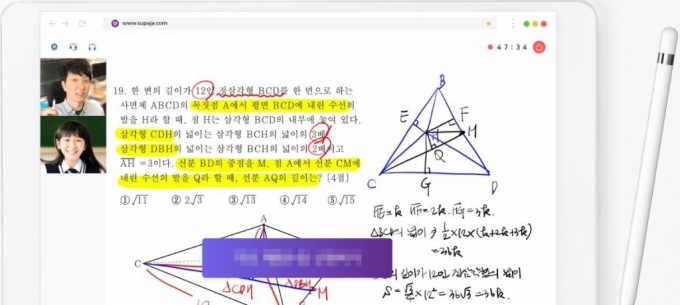 www.supaja.com
47:34
19. 한 변의 길이가 12인 정삼각형 BCD를 한 면으로 하는
사면체 ABCD의 꼭짓점 A에서 평면 BCD에 내린 수선의
발을 H라 할 때, 점 H는 삼각형 BCD의 내부에 놓여 있다.
삼각형 CDH의 넓이는 삼각형 BCH의 넓이의 3배,
삼각형 DBH의 넓이는 삼각형 BCH의 넓이의 2배이고
AH =3이다. 선분 BD의 중점을 M, 점 A에서 선분 CM에
내린 수선의 발을 Q라 할 때, 선분 AQ의 길이는? [4점]
①√11 ② 2√3 ③√13 ④√14 ⑤√15
B
E F
H M
Q
C G D
HE=k HF=2k HG=3k
△BCD의 넓이 ½×12×(k+2k+3k)
=36k
길이가 12인 정삼각형의 넓이
S=√3/4×12²=36√3=36k
A
C
△CDH △DBH
M